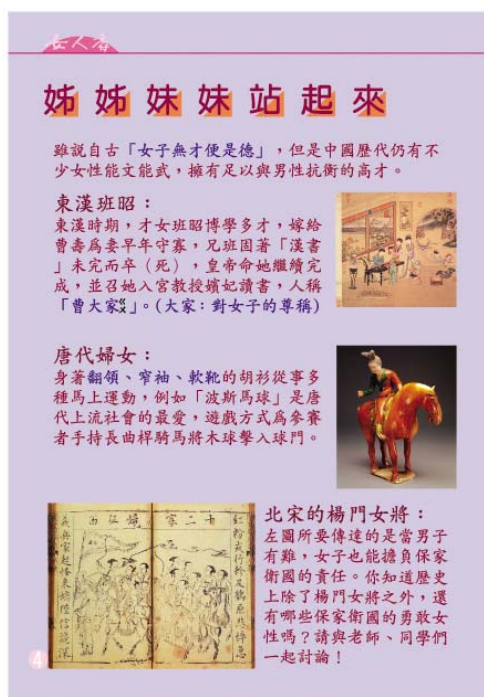 女人
姊姊妹妹站起來
雖說自古「女子無才便是德」，但是中國歷代仍有不
少女性能文能武，擁有足以與男性抗衡的高才。
東漢班昭：
東漢時期，才女班昭博學多才，嫁給
曹壽為妻早年守寡，兄班固著「漢書
」未完而卒（死），皇帝命她繼續完
成，並召她入宮教授嬪妃讀書，人稱
「曹大家ㄍㄨ」。(大家：對女子的尊稱)
唐代婦女：
身著翻領、窄袖、軟靴的胡衫從事多
種馬上運動，例如「波斯馬球」是唐
代上流社會的最愛，遊戲方式為參賽
者手持長曲桿騎馬將木球擊入球門。
十二寡婦征西
北宋的楊門女將：
左圖所要傳達的是當男子
有難，女子也能擔負保家
衛國的責任。你知道歷史
上除了楊門女將之外，還
有哪些保家衛國的勇敢女
性嗎？請與老師、同學們
一起討論！
4